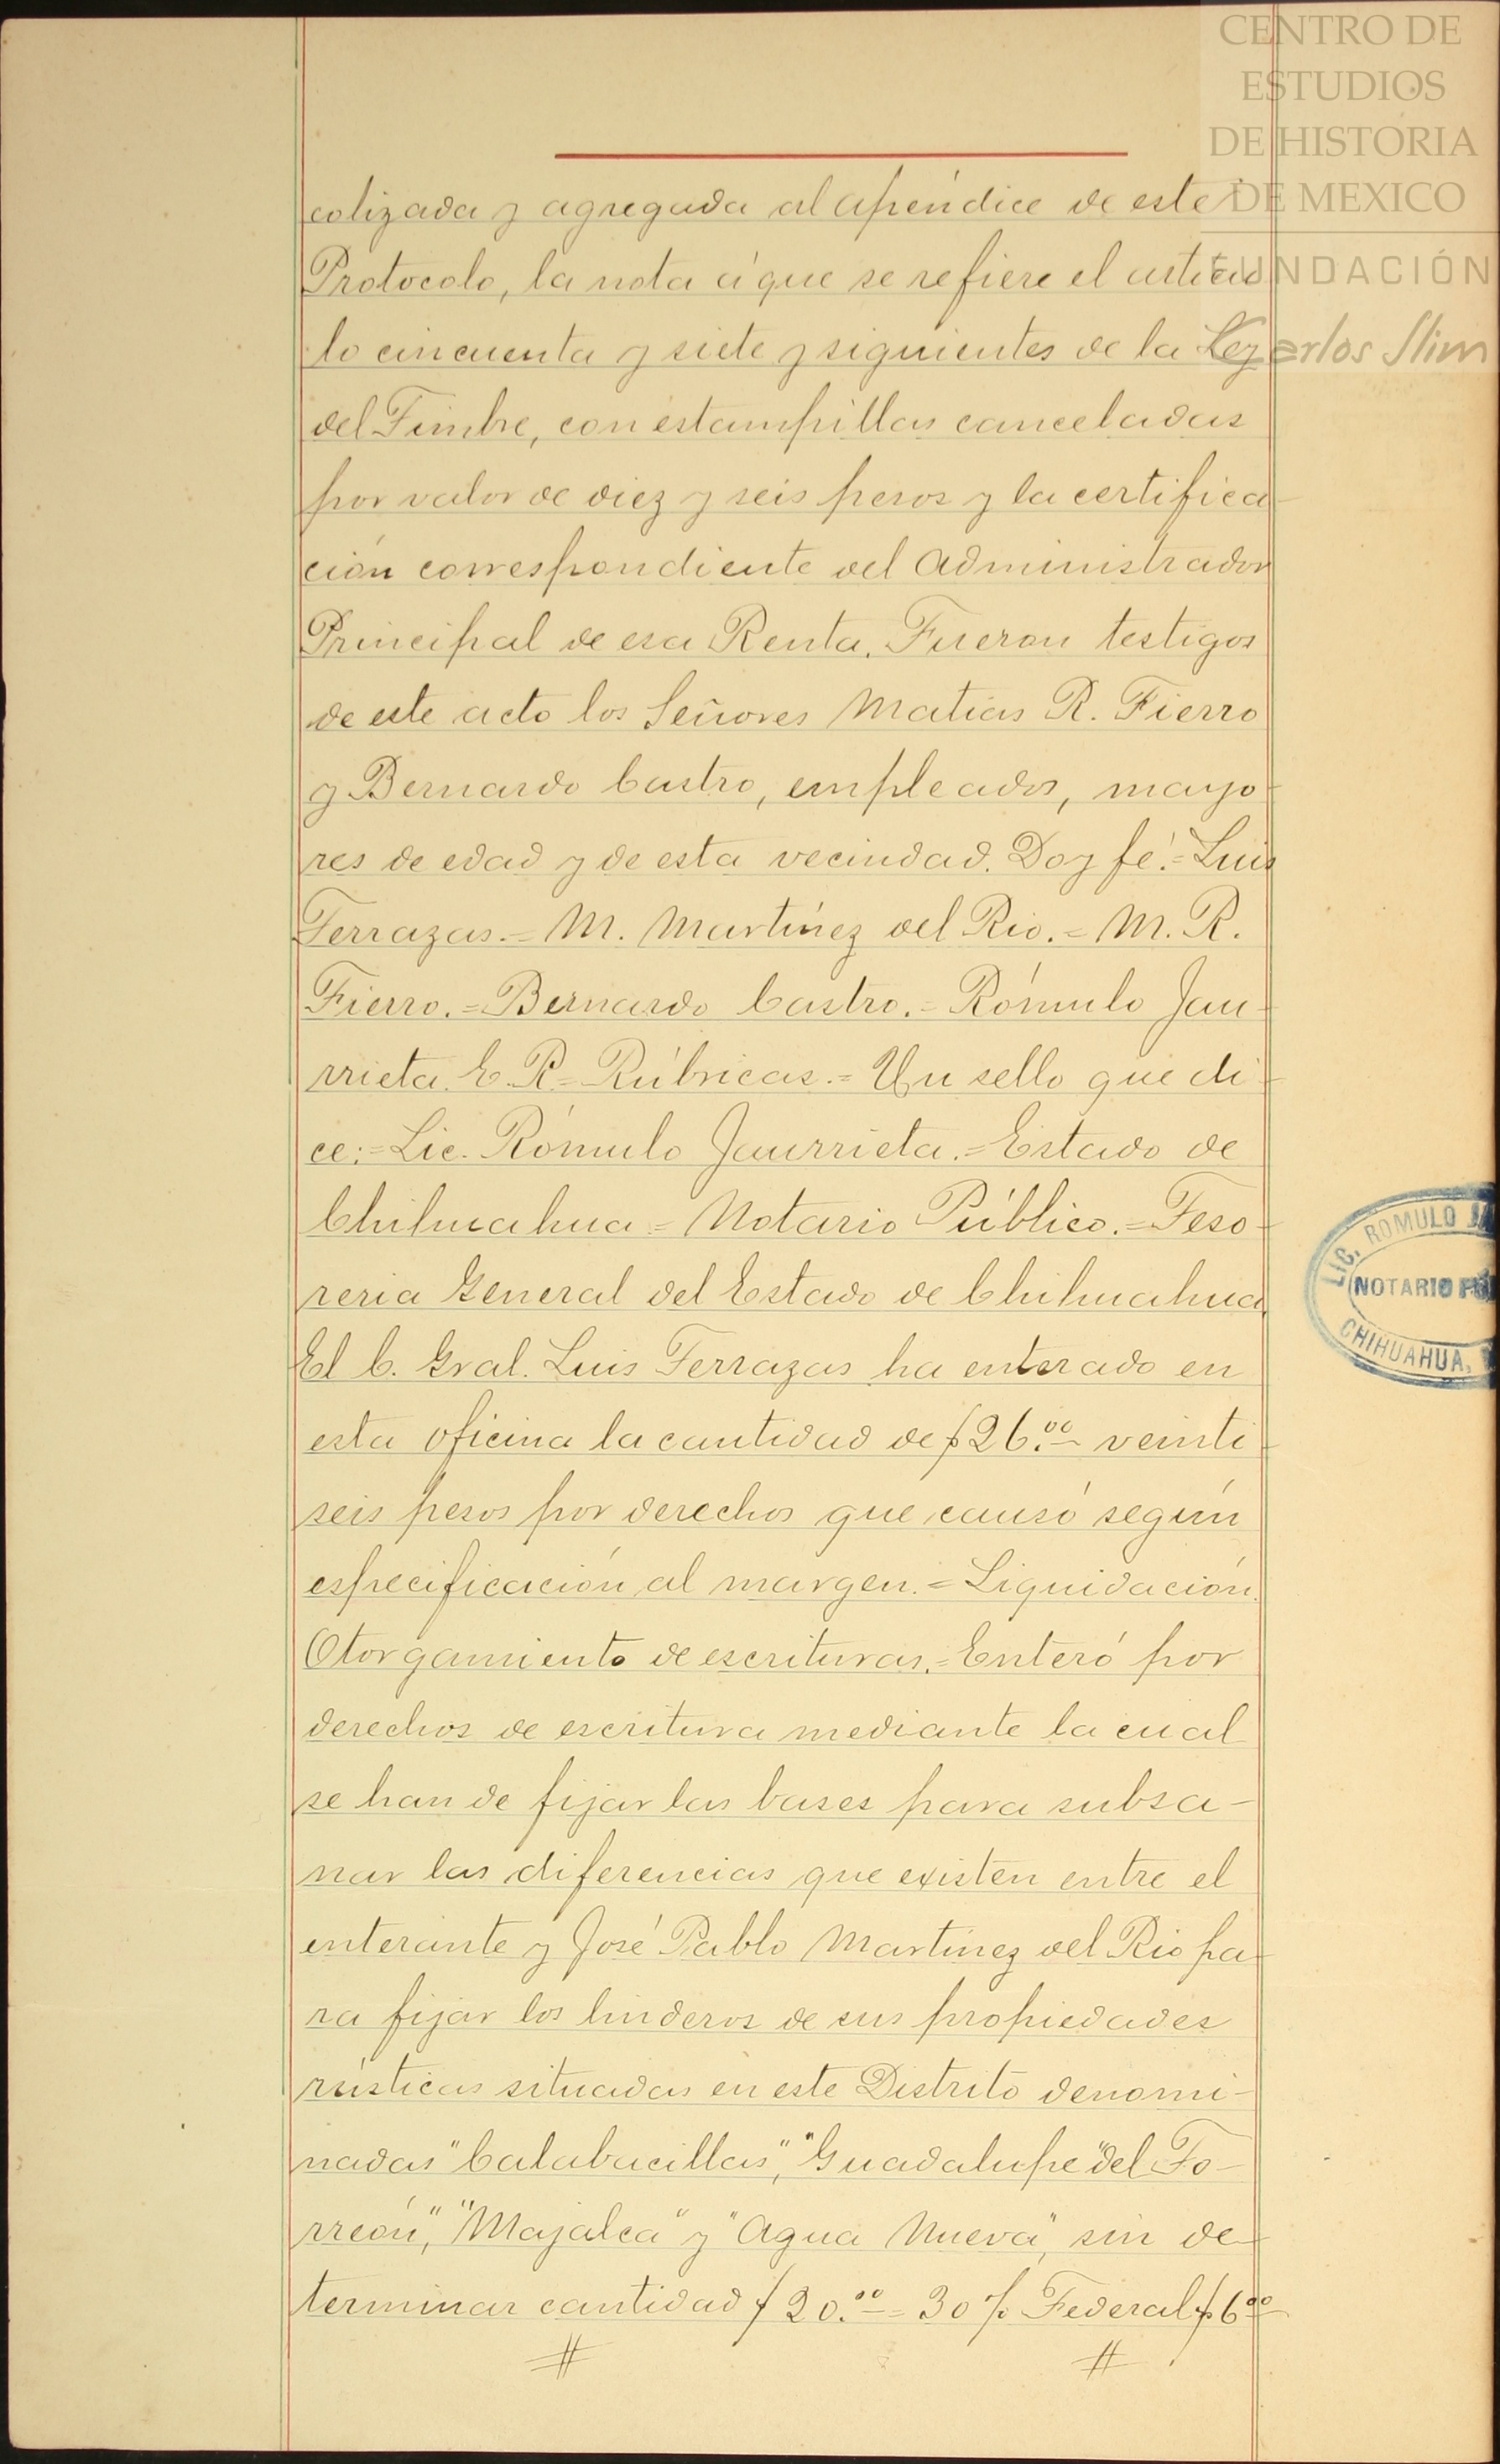 CENTRO DE
ESTUDIOS
DE HISTORIA
DE MEXICO
FUNDACIÓN
Carlos Slim
colizada y agregada al apéndice de este
Protocolo, la nota á que se refiere el artícu
lo cincuenta y siete y siguientes de la Ley
del Timbre, con estampillas canceladas
por valor de diez y seis pesos y la certifica-
ción correspondiente del Administrador
Principal de esa Renta. Fueron testigos
de este acto los Señores Matías R. Fierro
y Bernardo Castro, empleados, mayo-
res de edad y de esta vecindad. Doy fé.= Luis
Terrazas.= M. Martínez del Rio.= M. R.
Fierro.= Bernardo Castro.= Rómulo Jau-
rrieta. E. P.= Rúbricas.= Un sello que di-
ce:= Lic. Rómulo Jaurrieta.= Estado de
Chihuahua= Notario Público.= Teso-
reria General del Estado de Chihuahua
El C. Gral. Luis Terrazas ha enterado en
esta oficina la cantidad de $26.00 veinti-
seis pesos por derechos que causó según
especificación al margen.= Liquidación.
Otorgamiento de escrituras.= Enteró por
derechos de escritura mediante la cual
se han de fijar las bases para subsa-
nar las diferencias que existen entre el
enterante y José Pablo Martínez del Rio pa-
ra fijar los linderos de sus propiedades
rústicas situadas en este Distrito denomi-
nadas "Calabacillas", "Guadalupe" del To-
rreón", "Majalca" y "Agua Nueva", sin de-
terminar cantidad $20.00= 30% Federal $6.00
LIC. ROMULO
NOTARIO PÚ
CHIHUAHUA,